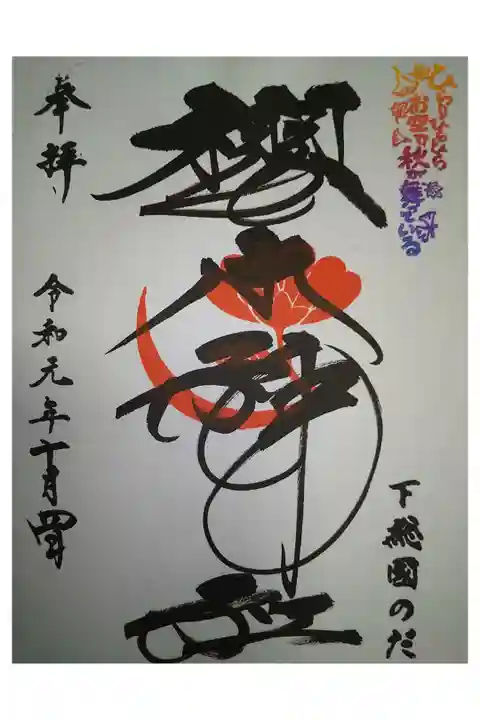 ひらりひらひら
お空の秋が舞っている
下総國のだ
櫻木神社
奉拝
令和元年十月四日